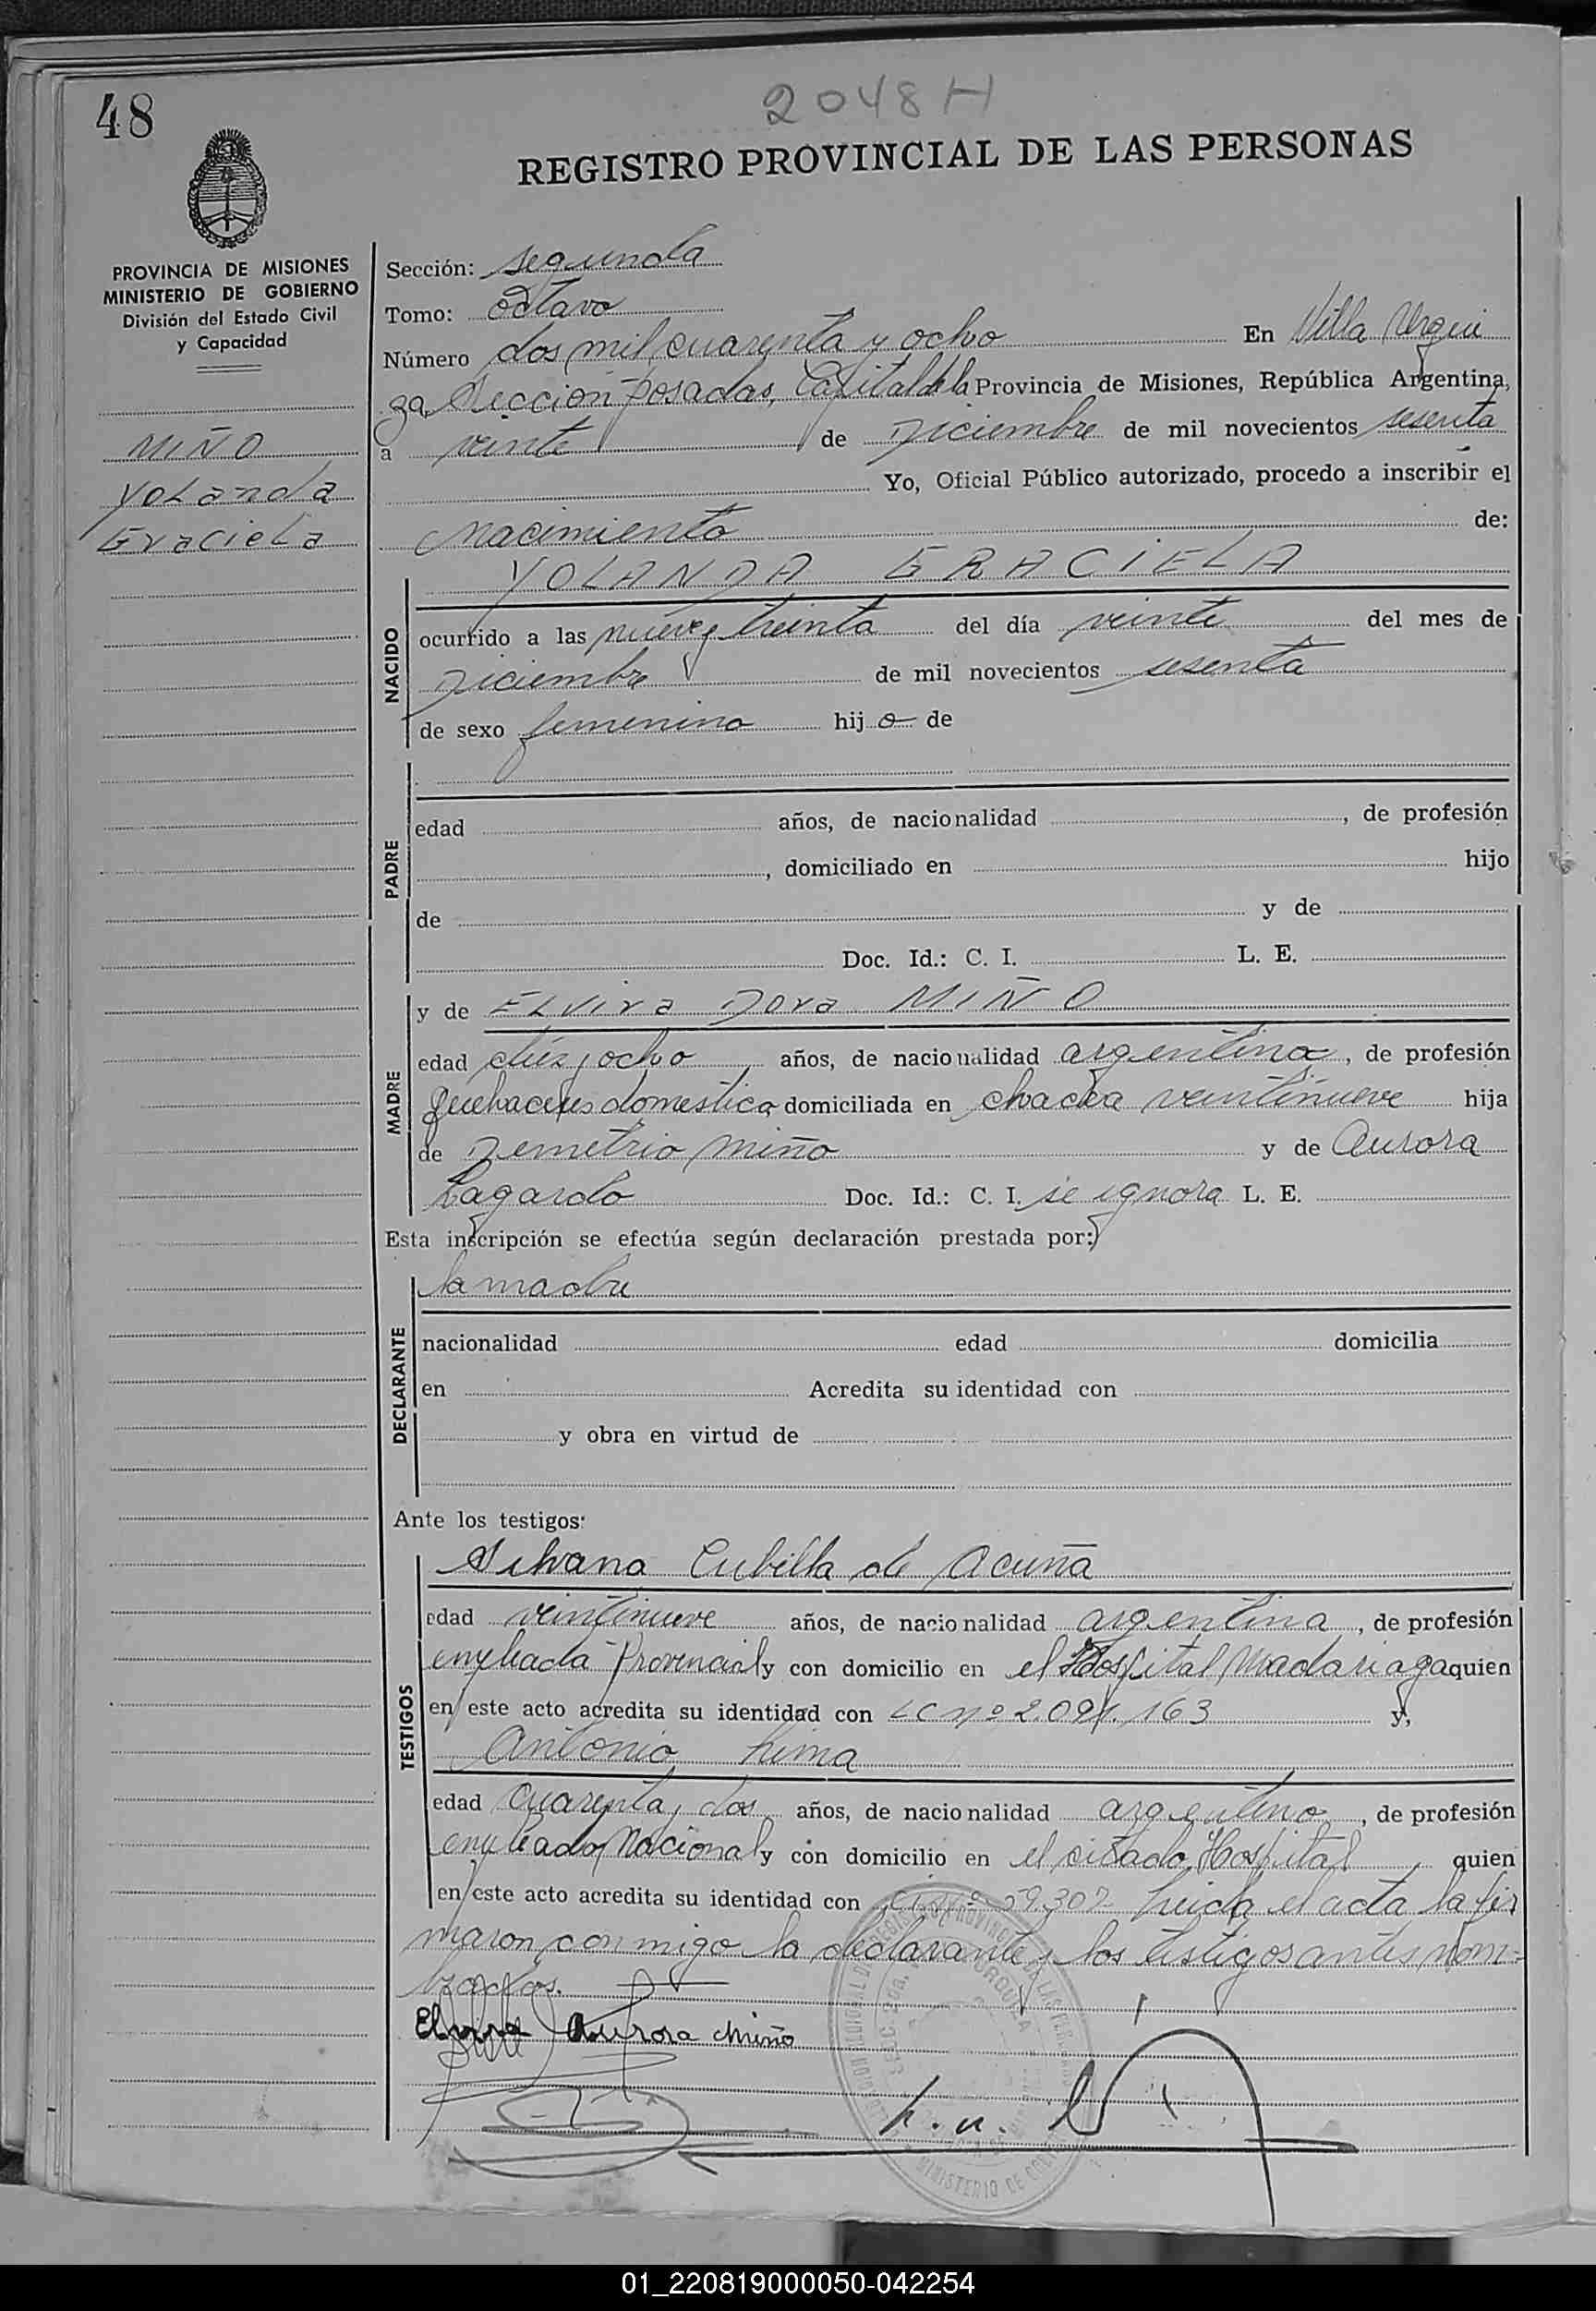 48
2048H
REGISTRO PROVINCIAL DE LAS PERSONAS
PROVINCIA DE MISIONES
MINISTERIO DE GOBIERNO
División del Estado Civil
y Capacidad
MIÑO
Yolanda
Graciela
Sección: segunda
Tomo: Octavo
Número dos mil cuarenta y ocho En Villa Urqui
za, Sección Posadas, Capital de la Provincia de Misiones, República Argentina,
a veinte de Diciembre de mil novecientos sesenta
Yo, Oficial Público autorizado, procedo a inscribir el
nacimiento de:
YOLANDA GRACIELA
NACIDO
ocurrido a las nueve y treinta del día veinte del mes de
Diciembre de mil novecientos sesenta
de sexo femenino hij a de
PADRE
edad años, de nacionalidad , de profesión
, domiciliado en hijo
de y de
Doc. Id.: C. I. L. E.
MADRE
y de Elvira Dora MIÑO
edad diez y ocho años, de nacionalidad argentina, de profesión
quehaceres domestica domiciliada en chacra veintinueve hija
de Demetrio Miño y de Aurora
Lagardo Doc. Id.: C. I. se ignora L. E.
Esta inscripción se efectúa según declaración prestada por:
DECLARANTE
la madre
nacionalidad edad domicilia
en Acredita su identidad con
y obra en virtud de
Ante los testigos:
TESTIGOS
Silvana Cubilla de Acuña
edad veintinueve años, de nacionalidad argentina, de profesión
empleada Provincial y con domicilio en el Hospital Madariaga quien
en este acto acredita su identidad con LC nº 2.091.163 y,
Antonio Lima
edad cuarenta y dos años, de nacionalidad argentino, de profesión
empleado Nacional y con domicilio en el citado Hospital quien
en este acto acredita su identidad con 59.302 Leida el acta la fir
maron conmigo la declarante y los testigos antes nom-
brados.
Elvira Aurora Miño
01_220819000050-042254